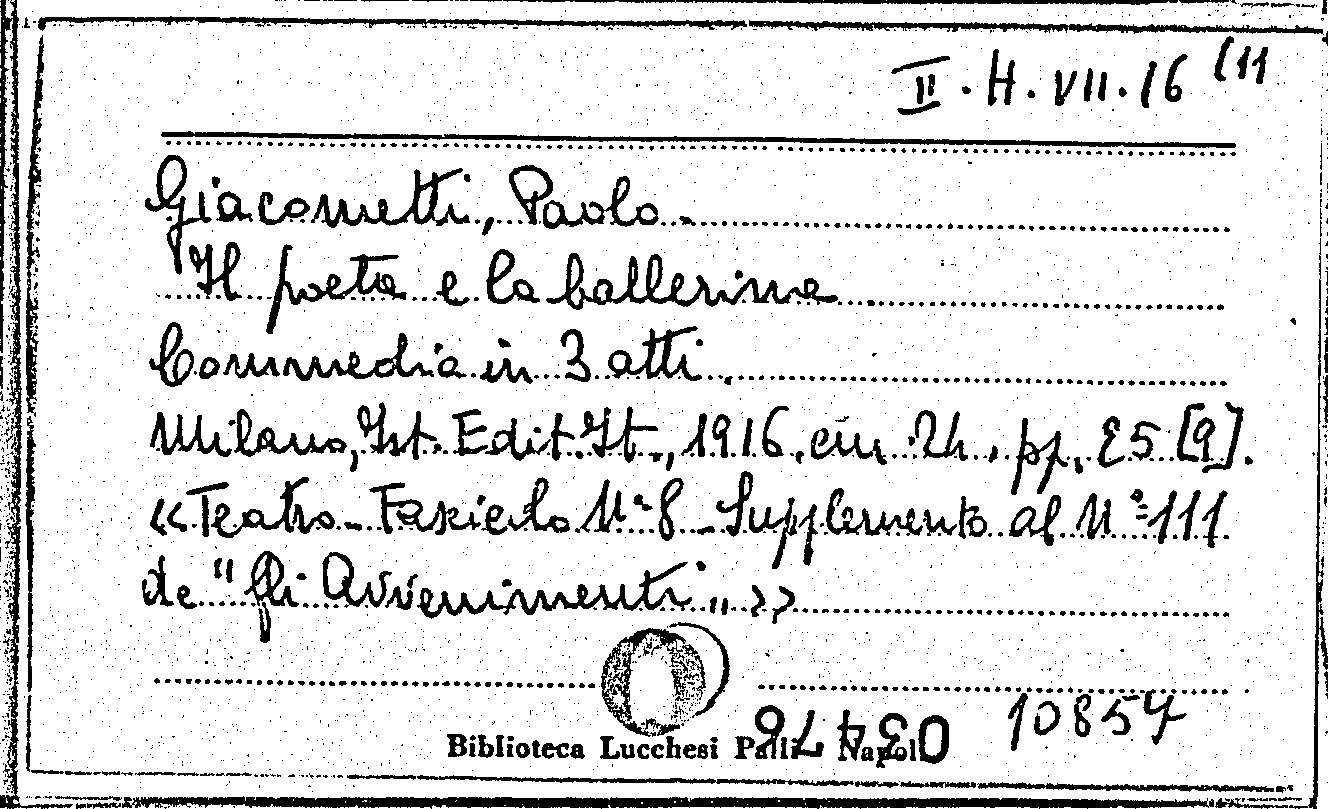 II . H . VII . 16 (11
Giacometti, Paolo -
Il poeta e la ballerina
Commedia in 3 atti.
Milano, Ist. Edit. It., 1916, cm. 24, pp. 25 [9].
«Teatro - Fascicolo N° 8 - Supplemento al N° 111
de "Gli Avvenimenti„ »
10857
Biblioteca Lucchesi Palli - Napoli